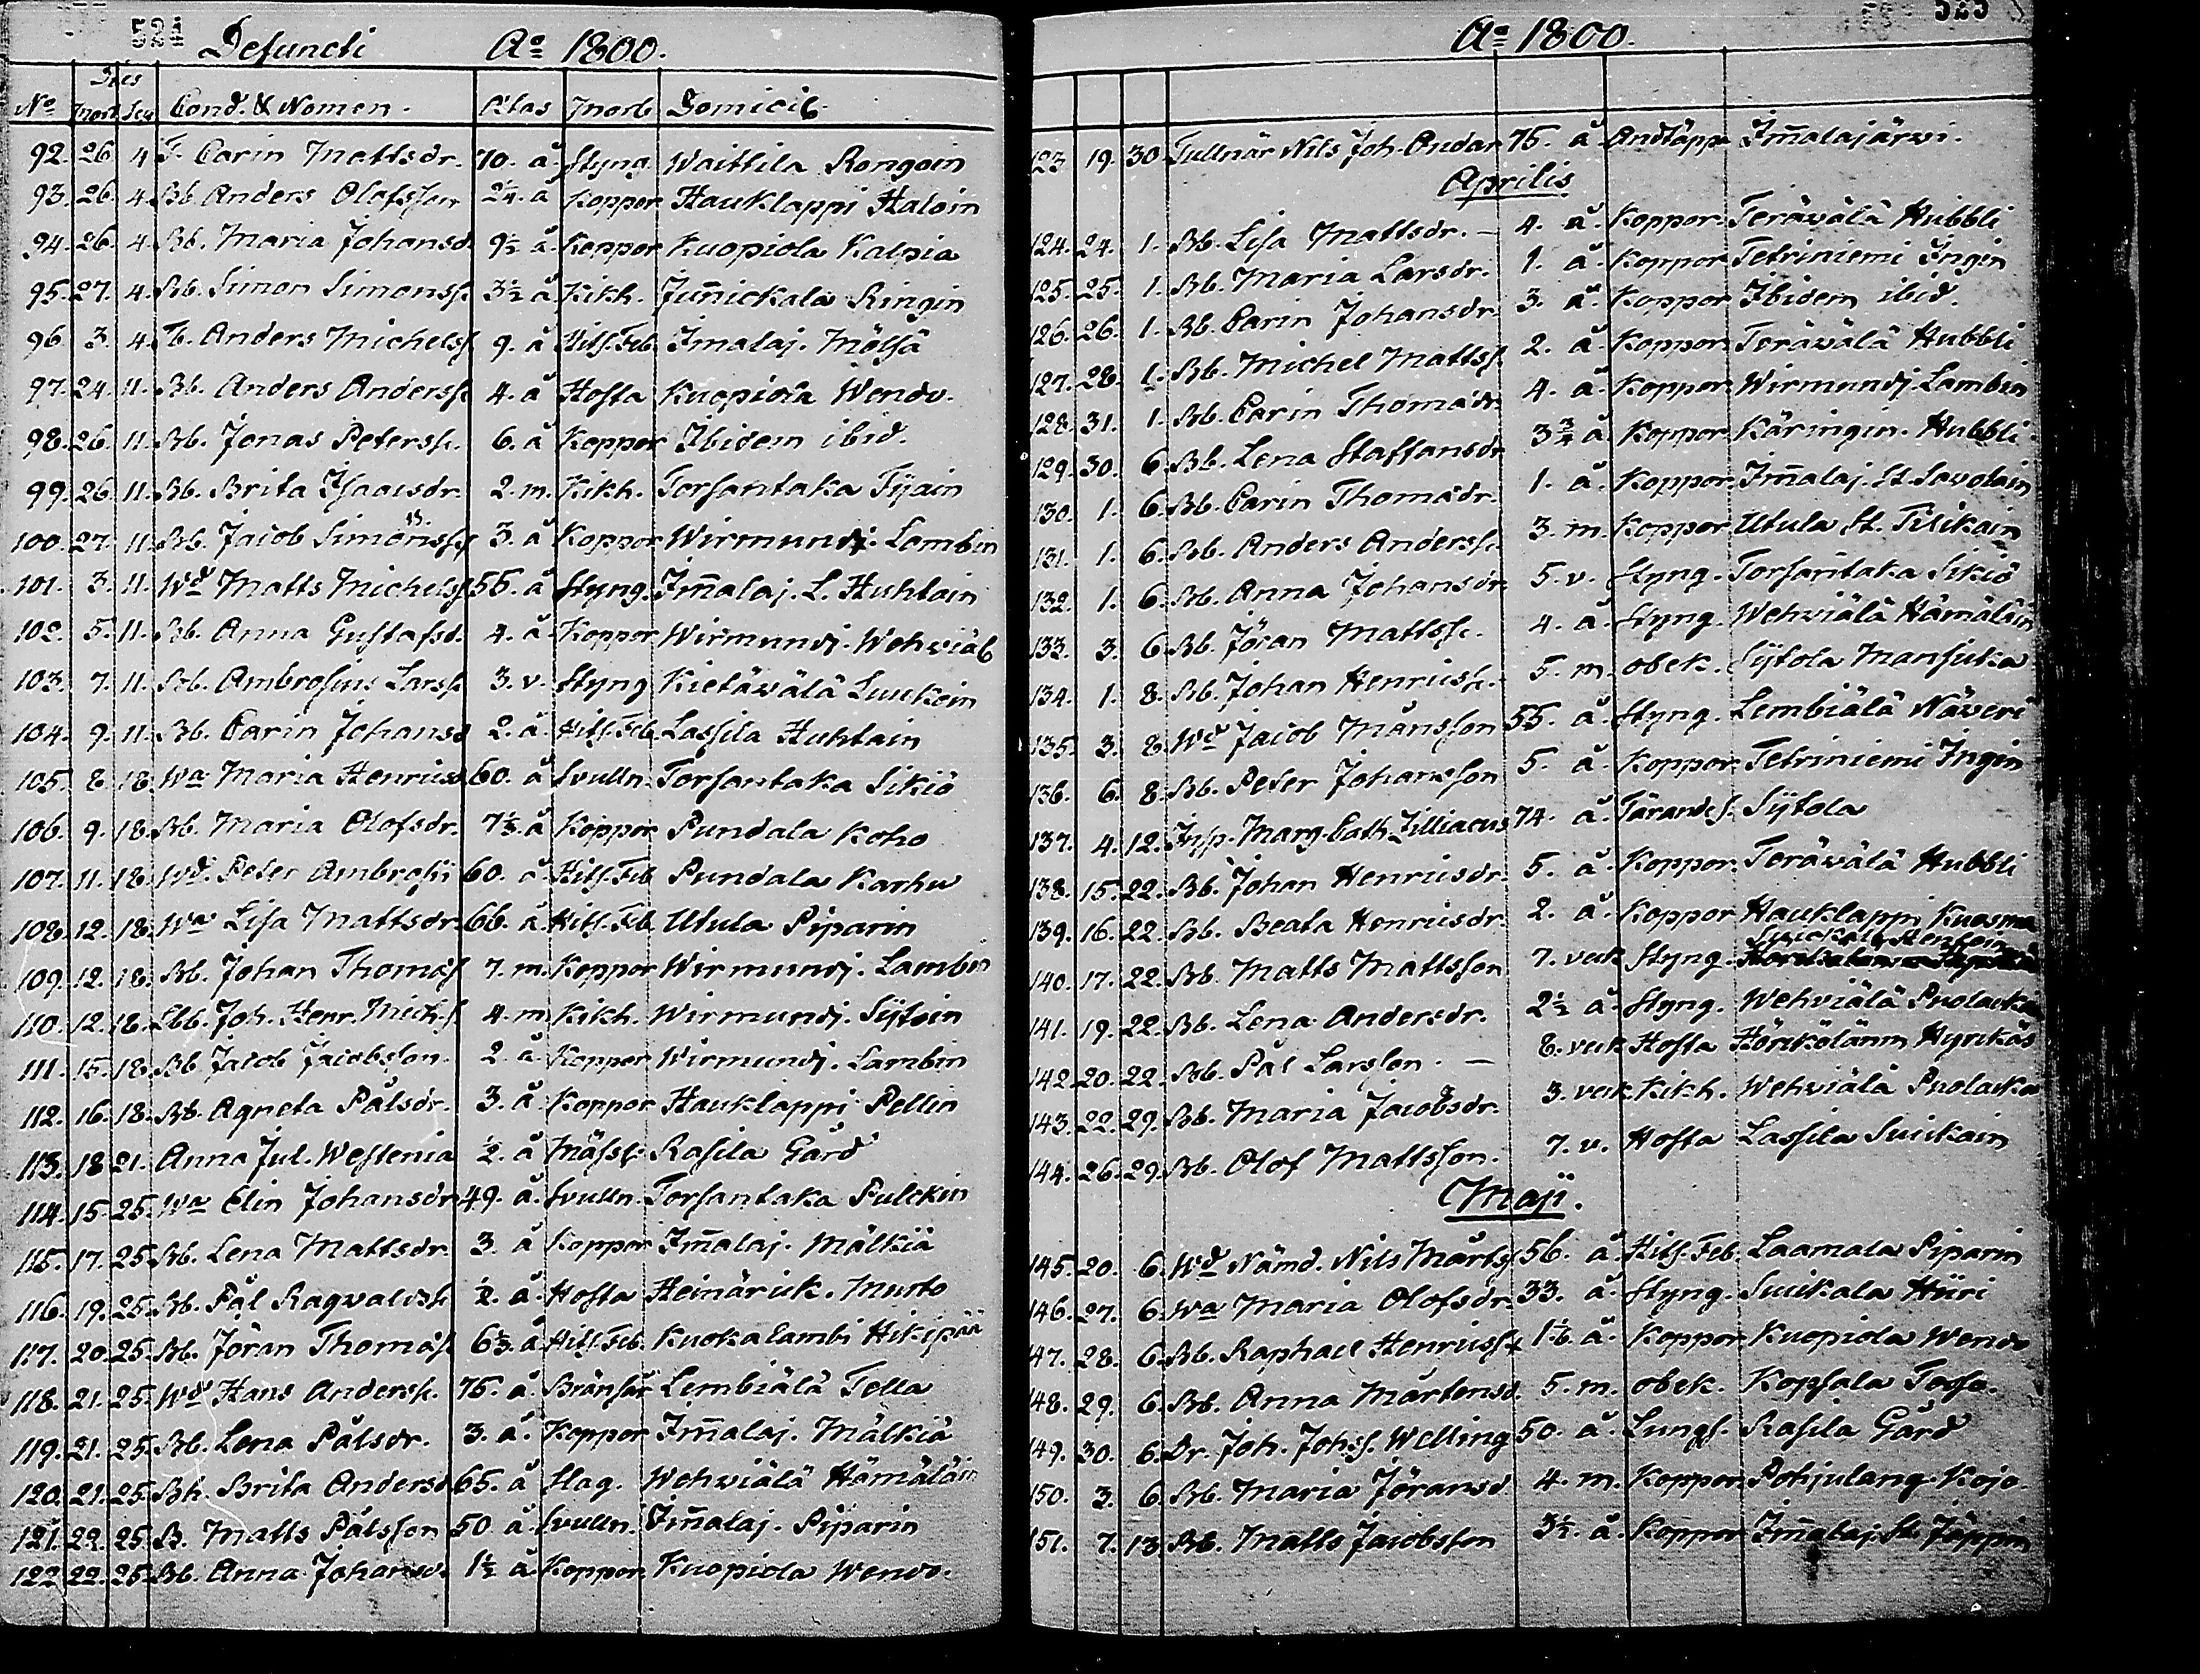 524
Defuncti Ao 1800.
Dies
No Mort Sep Cond. & Nomen. Ætas Morb Domicil
92. 26. 4 F. Carin Mattsdr. 70. å Styng. Waittila Rongoin
93. 26. 4. Bb. Anders Olofsson 2¼. å Koppor Hauklappi Haloin
94. 26. 4. Bb. Maria Johansd. 9½ å Koppor Kuopiola Kalpia
95. 27. 4. Bb. Simon Simonss. 3½ å Kikh. Jun̄ickala Ringin
96. 3. 4. Anders Michelss. 9. å Hits. Feb. Imalaj. Mölsä
97. 24. 11. Bb. Anders Anderss. 4. å Hosta Kuopiola Wendo.
98. 26. 11. Bb. Jonas Peterss. 6. å Koppor Ibidem ibid.
99. 26. 11. Bb. Brita Isacsdr. 2. m. Kikh. Torsantaka Tijain
100. 27. 11. Bb. Jacob Simonss. 3. å Koppor Wirmundj. Lambin
101. 3. 11. Wd Matts Michelss 55. å Styng. Im̄alaj. L. Huhtain
102. 5. 11. Bb. Anna Gustafsd. 4. å Koppor Wirmundj. Wehviäl
103. 7. 11. Bb. Ambrosius Larss. 3. v. Styng Kietäwälä Luukoin
104. 9. 11. Bb. Carin Johansd 2. å Hits. Feb Lassila Huhtain
105. 8. 18. Wa Maria Henricsd 60. å Svulln. Torsantaka Sikiö
106. 9. 18. Bb. Maria Olofsdr. 7½. å Koppor Pundala Koho
107. 11. 18. Wd. Peter Ambrosii 60. å Hits. Feb Pundala Karhu
108. 12. 18. Wa Lisa Mattsdr. 66. å Hits. Feb Utula Piparin
109. 12. 18. Bb. Johan Thomass 7. m. Koppor Wirmundj. Lambin
110. 12. 18. Joh. Henr. Mich. s. 4. m Kikh. Wirmundj. Sÿtoin
111. 15. 18. Bb Jacob Jacobsson. 2. å Koppor Wirmundj. Lambin
112. 16. 18. Bb. Agneta Pålsdr. 3. å Koppor Hauklappi Pellin
113. 18 21. Anna Jul. Westenia ½. å Mäss. Rasila Gård
114. 15. 25. Wa Elin Johansdr 49. å. Svulln. Torsantaka Pulckin
115. 17. 25. Bb. Lena Mattsdr. 3. å Koppor Im̄alaj. Mälkiä
116. 19. 25. Bb. Pål Ragvaldss. ½. å Hosta Heinärick. Musto
117. 20. 25. Bb. Jöran Thomass. 6½. å Hits. Feb. Kuokalambi Hikipää
118. 21. 25. Wd Hans Anderss. 75. å. Brånsår Lembiälä Tella
119. 21. 25. Bb. Lena Pålsdr. 3. å. Koppor Im̄alaj. Mälkiä
120. 21. 25. Bh. Brita Andersd 65. å Slag. Wehviälä Hämäläin
121. 22. 25. B. Matts Pålsson 50. å Svulln. Im̄alaj. Piparin
122. 22. 25. Bb. Anna Johansd. 1½ å Koppor Kuopiola Wendo.
525
Ao 1800.
123 19. 30 Tullnär Nils Joh. Andar 75. å Andtäppa Im̄alajärwi.
Aprilis
124. 24. 1. Bb. Lisa Mattsdr. – 4. å. Koppor. Teräwälä Hubbli
125. 25. 1. Bb. Maria Larsdr. 1. å. Koppor Tetriniemi Ingin
126. 26. 1. Bb. Carin Johansdr. 3. å. Koppor Ibidem ibid.
127. 28. 1. Bb. Michel Mattss. 2. å. Koppor Teräwälä Hubbli
128. 31. 1. Bb. Carin Thomadr. 4. å. Koppor Wirmundj. Lambin
129. 30. 6. Bb. Lena Staffansdr 3¾ å Koppor Käringin. Hubbli.
130. 1. 6. Bb. Carin Thomadr. 1. å. Koppor. Im̄alaj. St. Savolain
131. 1. 6. Bb. Anders Anderss. 3. m. Koppor Utula St. Tilikain
132. 1. 6. Bb. Anna Johansdr. 5. v. Styng. Torsantaka Sikiö
133. 3. 6. Bb. Jöran Mattss. 4. å. Styng. Wehviälä Hämäläin
134. 1. 8. Bb. Johan Henricss. 5. m. obek. Sÿtola Mansuka
135. 3. 8. Wd Jacob Månsson 55. å. Styng. Lembiälä Näveri
136. 6. 8. Bb. Peter Johansson 5. å. Koppor Tetriniemi Ingin
137. 4. 12. Insp. Marg. Cath. Zilliacus 74. å. Tärands. Sÿtola
138. 15. 22. Bb. Johan Henricsdr. 5. å. Koppor. Teräwälä Hubbli
139. 16. 22. Bb. Beata Henricsdr. 2. å. Koppor Hauklappi Kuosma
140. 17. 22. Bb. Matts Mattsson 7. veck Styng.
141. 19. 22. Bb. Lena Andersdr. 2½ å. Styng. Wehviälä Puolacka
142. 20. 22. Bb. Pål Larsson. – 8. veck Hosta Härskölänm Hyrikäs
143. 22. 29. Bb. Maria Jacobsdr. 3. veck Kikh. Wehviälä Puolacka
144. 26. 29. Bb. Olof Mattsson. 7. v. Hosta Lassila Suickain
Maji.
145. 20. 6. Wd Nämd. Nils Mårtss 56. å. Hits. Feb. Laamala Piparin
146. 27. 6. Wa Maria Olofsdr. 33. å. Styng. Suikala Hiiri
147. 28. 6. Bb. Raphael Henricss. 1½. å. Koppor Kuopiola Wendo
148. 29. 6. Bb. Anna Mårtensd. 5. m. obek. Kopsala Tossa.
149. 30. 6. Dr. Joh. Johss. Welling 50. å. Lungs. Rasila Gård
150. 3. 6. Bb. Maria Jöransd 4. m. Koppor Pohjulang. Kojo.
151. 7. 13. Bb. Matts Jacobsson 3½. å. Koppor Im̄alaj. St. Jäppin